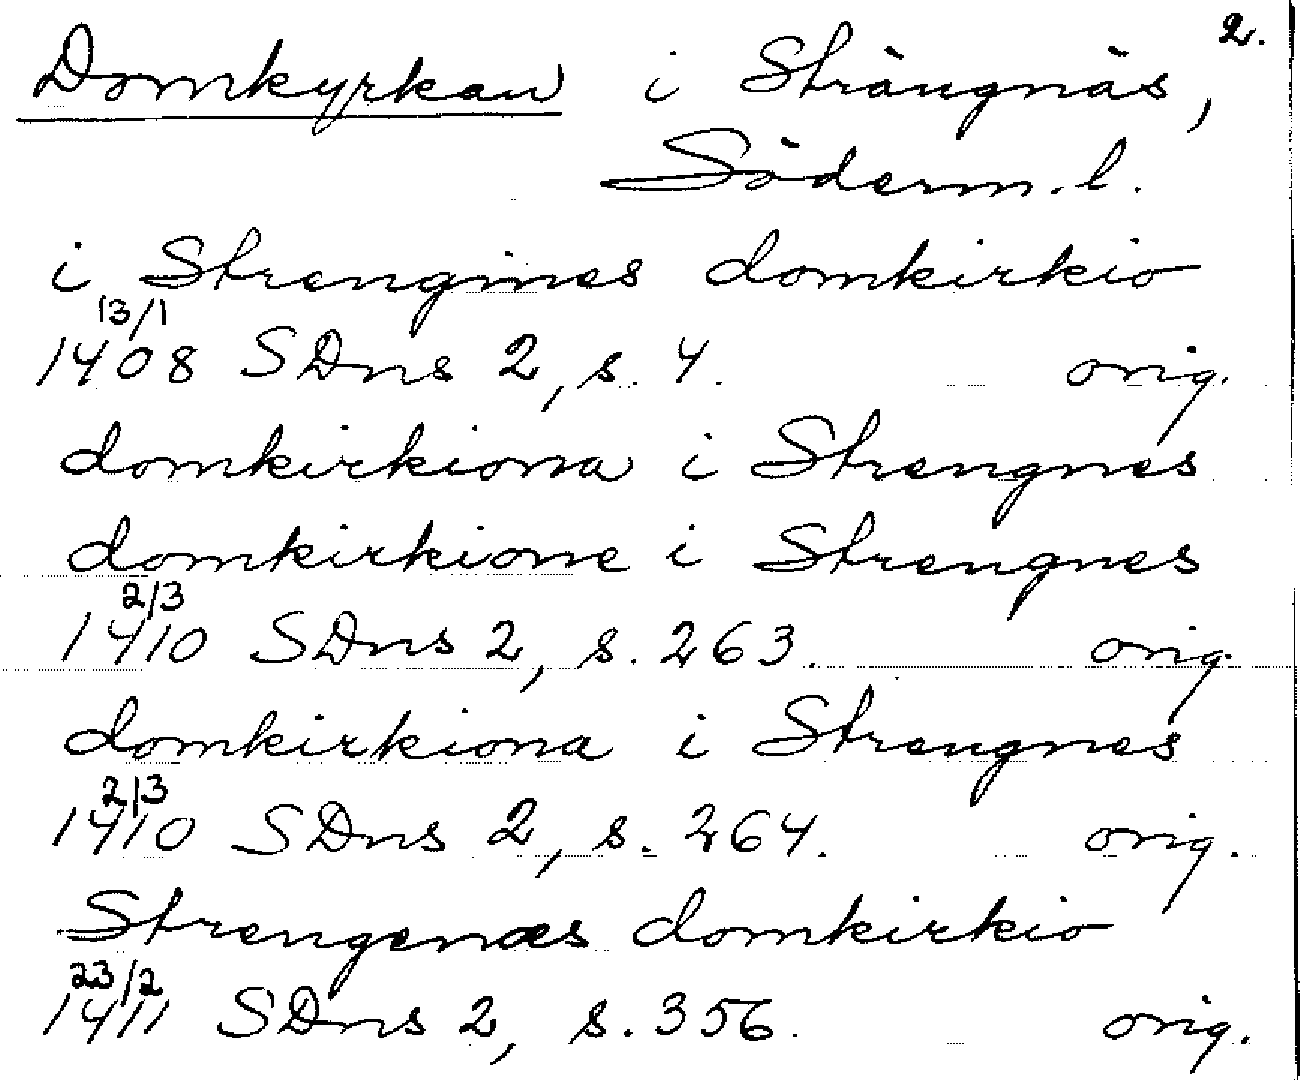 2.
Domkyrkan i Strängnäs,
Söderm.l.
i Strengines domkirkio
13/1
1408 SDns 2, s. 4. orig.
domkirkiona i Strengnes
domkirkione i Strengnes
2/3
1410 SDns 2, s. 263. orig.
domkirkiona i Strengnes
2/3
1410 SDns 2, s. 264. orig.
Strengenæs domkirkio
23/2
1411 SDns 2, s. 356. orig.